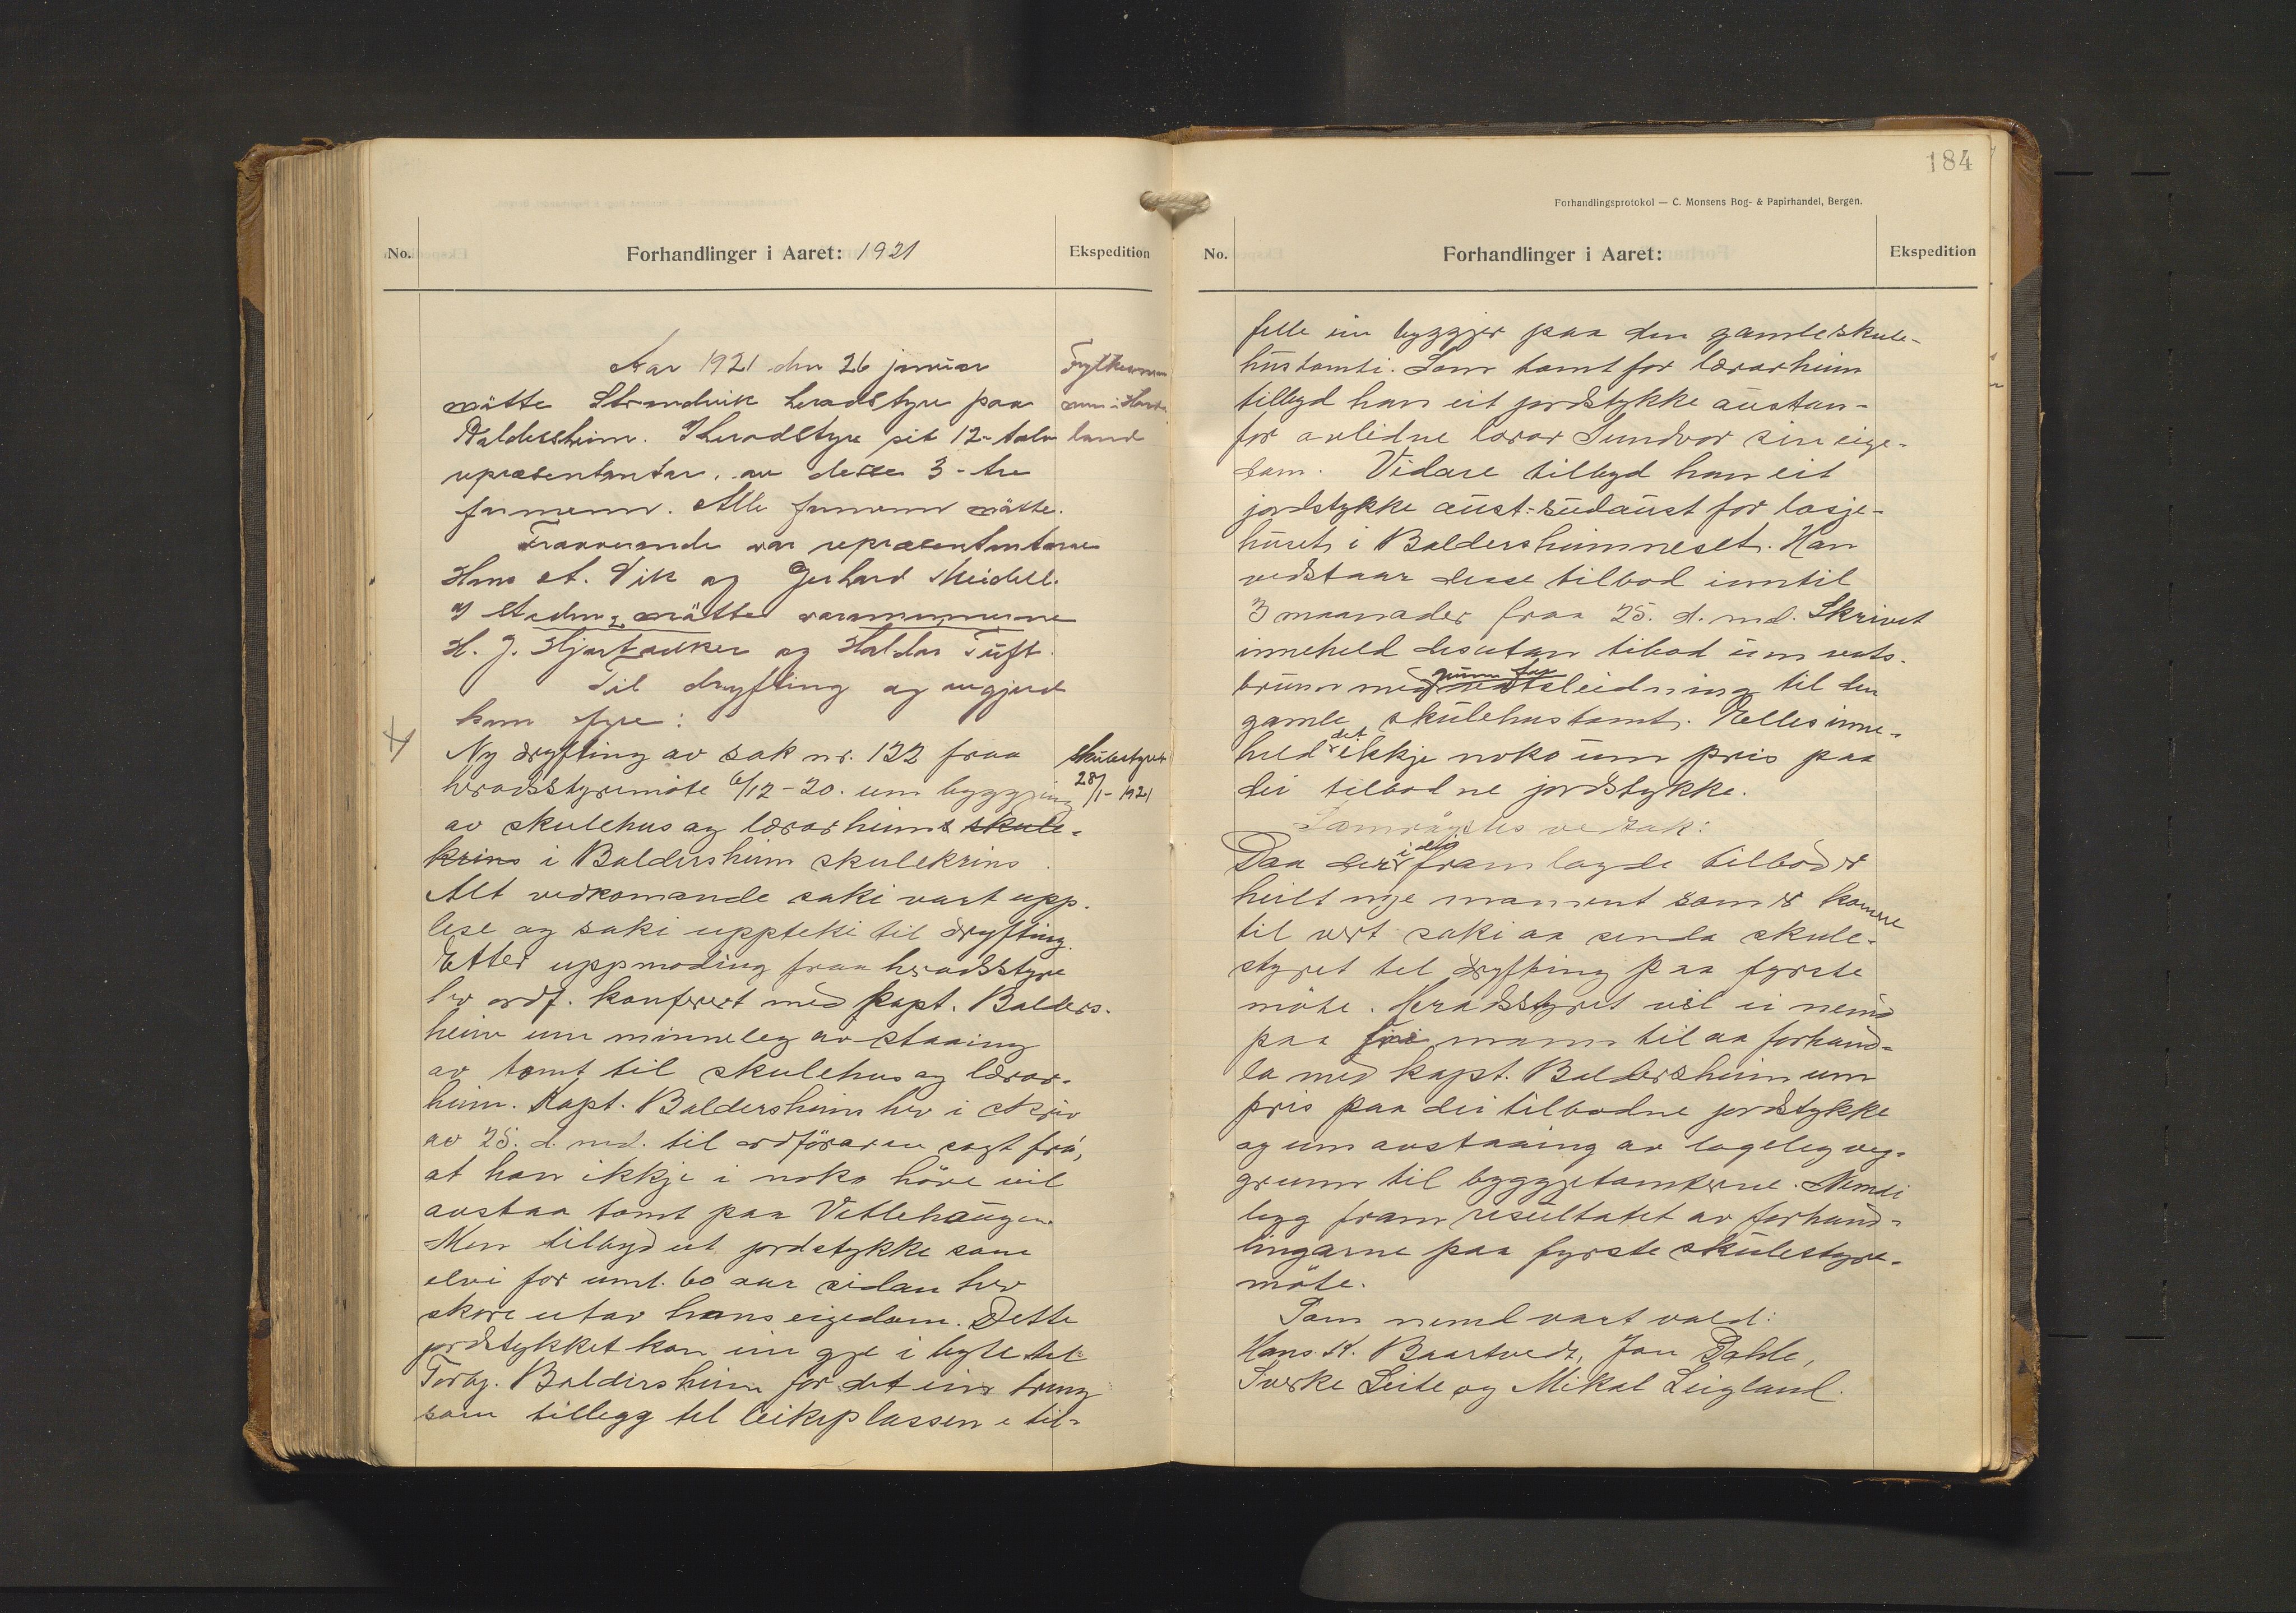 No.
Forhandlinger i Aaret: 1921
Ekspedition
Aar 1921 den 26 januar
mötte Strandvik heradstyre paa
Baldersheim. I heradstyre sit 12-tolv
representantar, av desse 3-tre
formenn. Alle formenn mötte.
Fraverande var representantarne
Hans A. Vik og Gerhard Meidell.
I staden mötte varamennerne
H. J. Hjartaaker og Haldor Tuft.
Til dryfting og avgjerd
kom fyre:
Fylkesmannen i Hordaland
Ny dryfting av sak nr. 122 fraa
heradsstyremöte 6/12-20. um byggjing
av skulehus og lærarheim i skule-
krins i Baldersheim skulekrins
Skulestyret
28/1-1921
Alt vedkomande saki vart upp-
lese og saki uppteki til dryfting.
Etter uppmoding fraa heradsstyre
hev ordf. konferert med kapt. Balders-
heim um minneleg avstaaing
av tomt til skulehus og lærar-
heim. Kapt. Baldersheim hev i skriv
av 25. d. md. til ordföraren sagt frå,
at han ikkje i noko höve vil
avstaa tomt paa Vetlehaugen.
Men tilbyd eit jordstykke som
elvi for umt. 60 aar sidan hev
skore utav hans eigedom. Dette
jordstykket kan ein gje i byte til
Torbj. Baldersheim for det ein treng
som tillegg til leikeplassen i til-
184
Forhandlingsprotokol — C. Monsens Bog- & Papirhandel, Bergen.
No.
Forhandlinger i Aaret:
Ekspedition
felle ein byggjer paa den gamle skule-
hustomti. Som tomt for lærarheim
tilbyd han eit jordstykke austan-
for avlidne lærar Sundvor sin eige-
dom. Vidare tilbyd han eit
jordstykke aust-sudaust for losje-
huset i Baldersheimneset. Han
vedstaar desse tilbod inntil
3 maanader fraa 25. d. md. Skrivet
inneheld desutan tilbod um vats-
brunn med grunn for vatsleidning til den
gamle skulehustomt. Elles inne-
held det ikkje noko um pris paa
dei tilbodne jordstykke.
Samröystes vedtak:
Daa der i dei framlagde tilbod er
heilt nye moment som er komne
til vert saki aa senda skule-
styret til dryfting paa fyrste
möte. Heradsstyret vel ei nemd
paa fire mann til aa forhand-
la med kapt. Baldersheim um
pris paa dei tilbodne jordstykke
og um avstaaing av lageleg veg-
grunn til byggjetomterne. Nemdi
legg fram resultatet av forhand-
lingarne paa fyrste skulestyre-
möte.
Som nemd vart vald:
Hans K. Baartvedt, Jon Dahle,
Sverke Leite og Mikal Leigland.